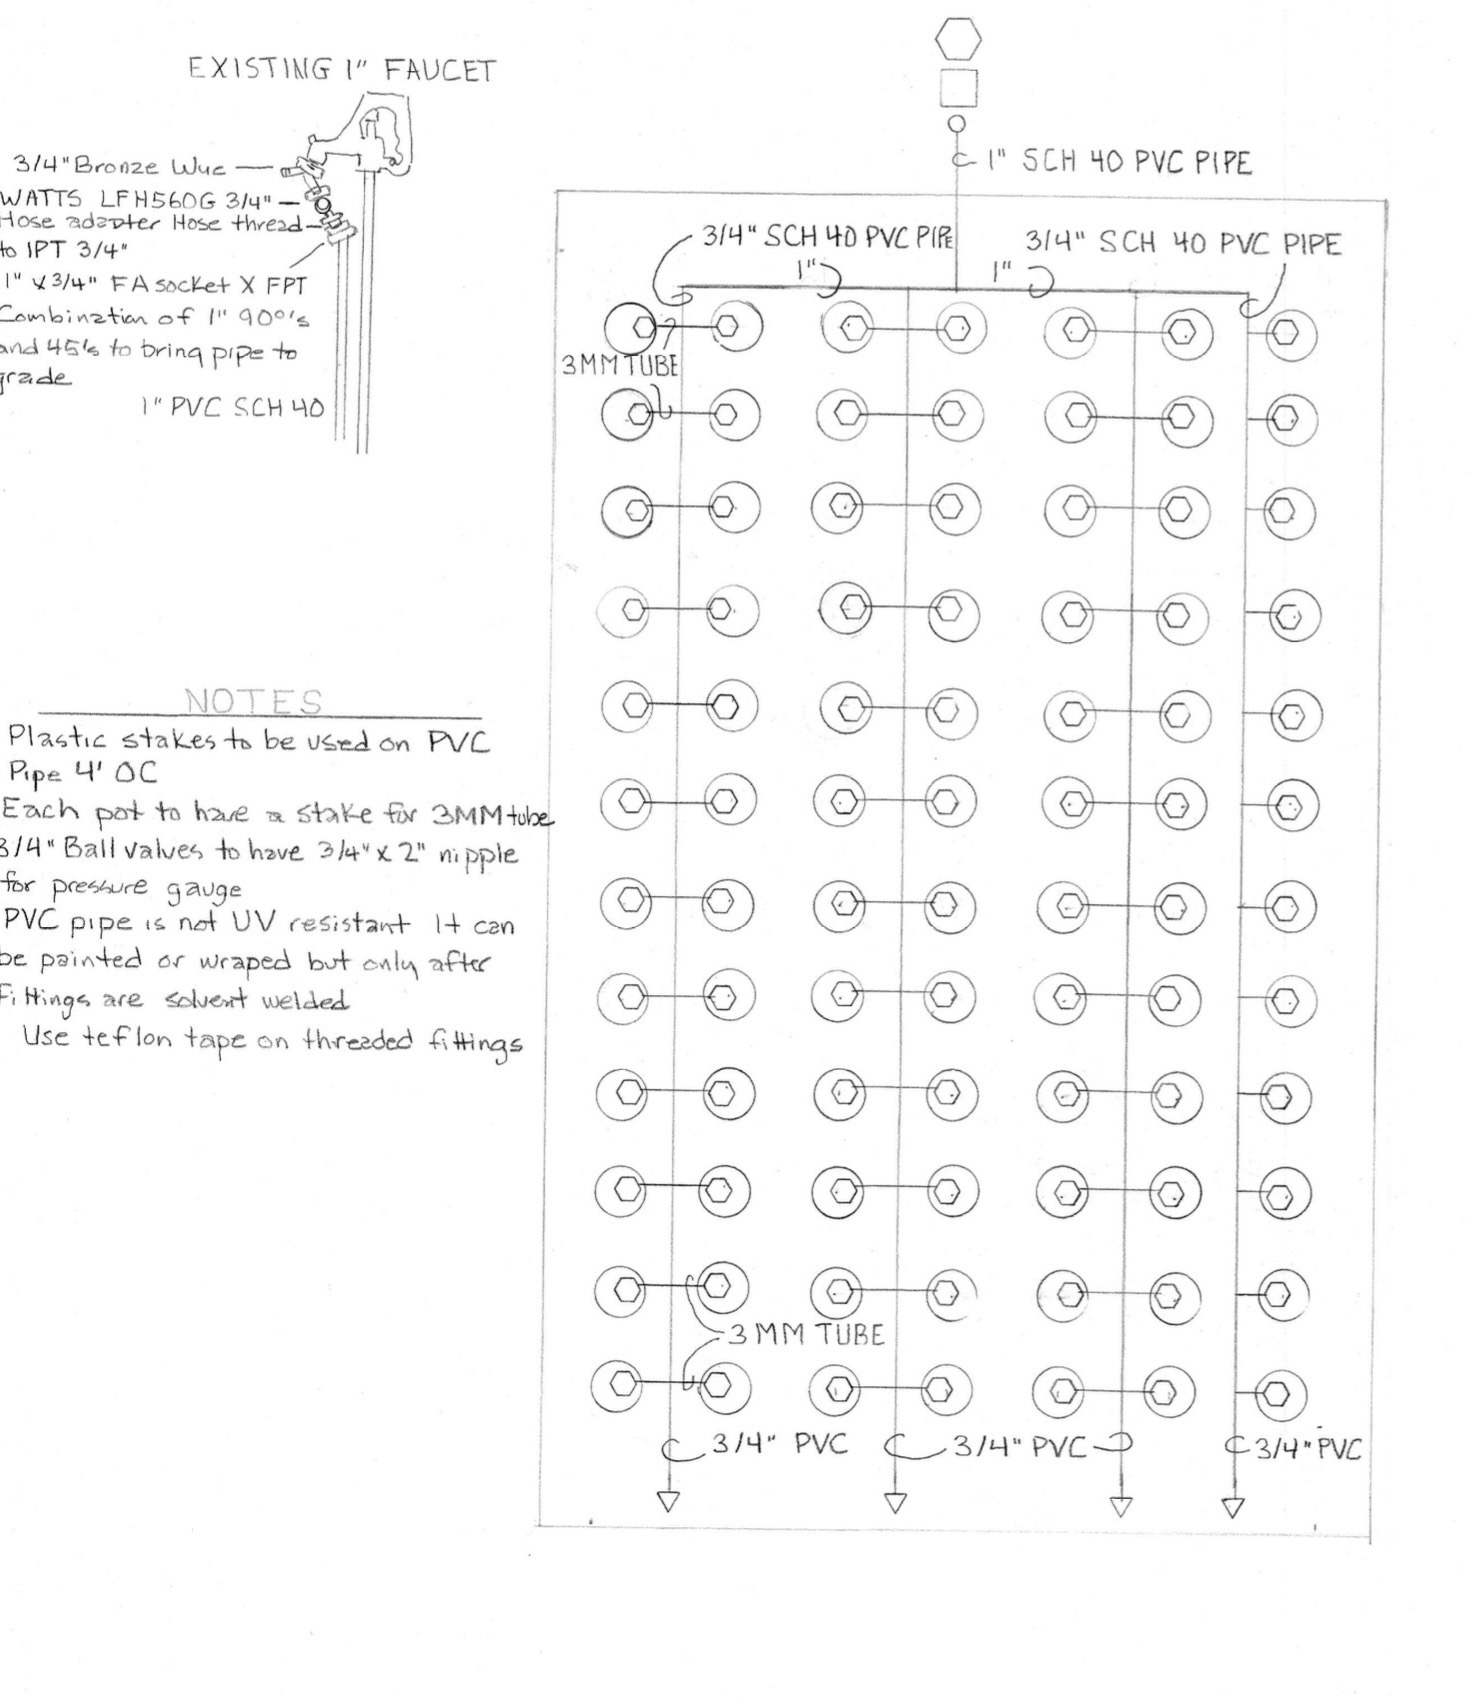 EXISTING 1" FAUCET
3/4" Bronze Wye
WATTS LFH560G 3/4"
Hose adapter Hose thread
to IPT 3/4"
1" x 3/4" FA socket X FPT
Combination of 1" 90°'s
and 45's to bring pipe to
grade
1" PVC SCH 40
NOTES
Plastic stakes to be used on PVC
Pipe 4' OC
Each pot to have a stake for 3MM tube
3/4" Ball valves to have 3/4" x 2" nipple
for pressure gauge
PVC pipe is not UV resistant It can
be painted or wraped but only after
Fittings are solvent welded
Use teflon tape on threaded fittings
1" SCH 40 PVC PIPE
3/4" SCH 40 PVC PIPE
3/4" SCH 40 PVC PIPE
1"
1"
3MM TUBE
3 MM TUBE
3/4" PVC
3/4" PVC
3/4" PVC